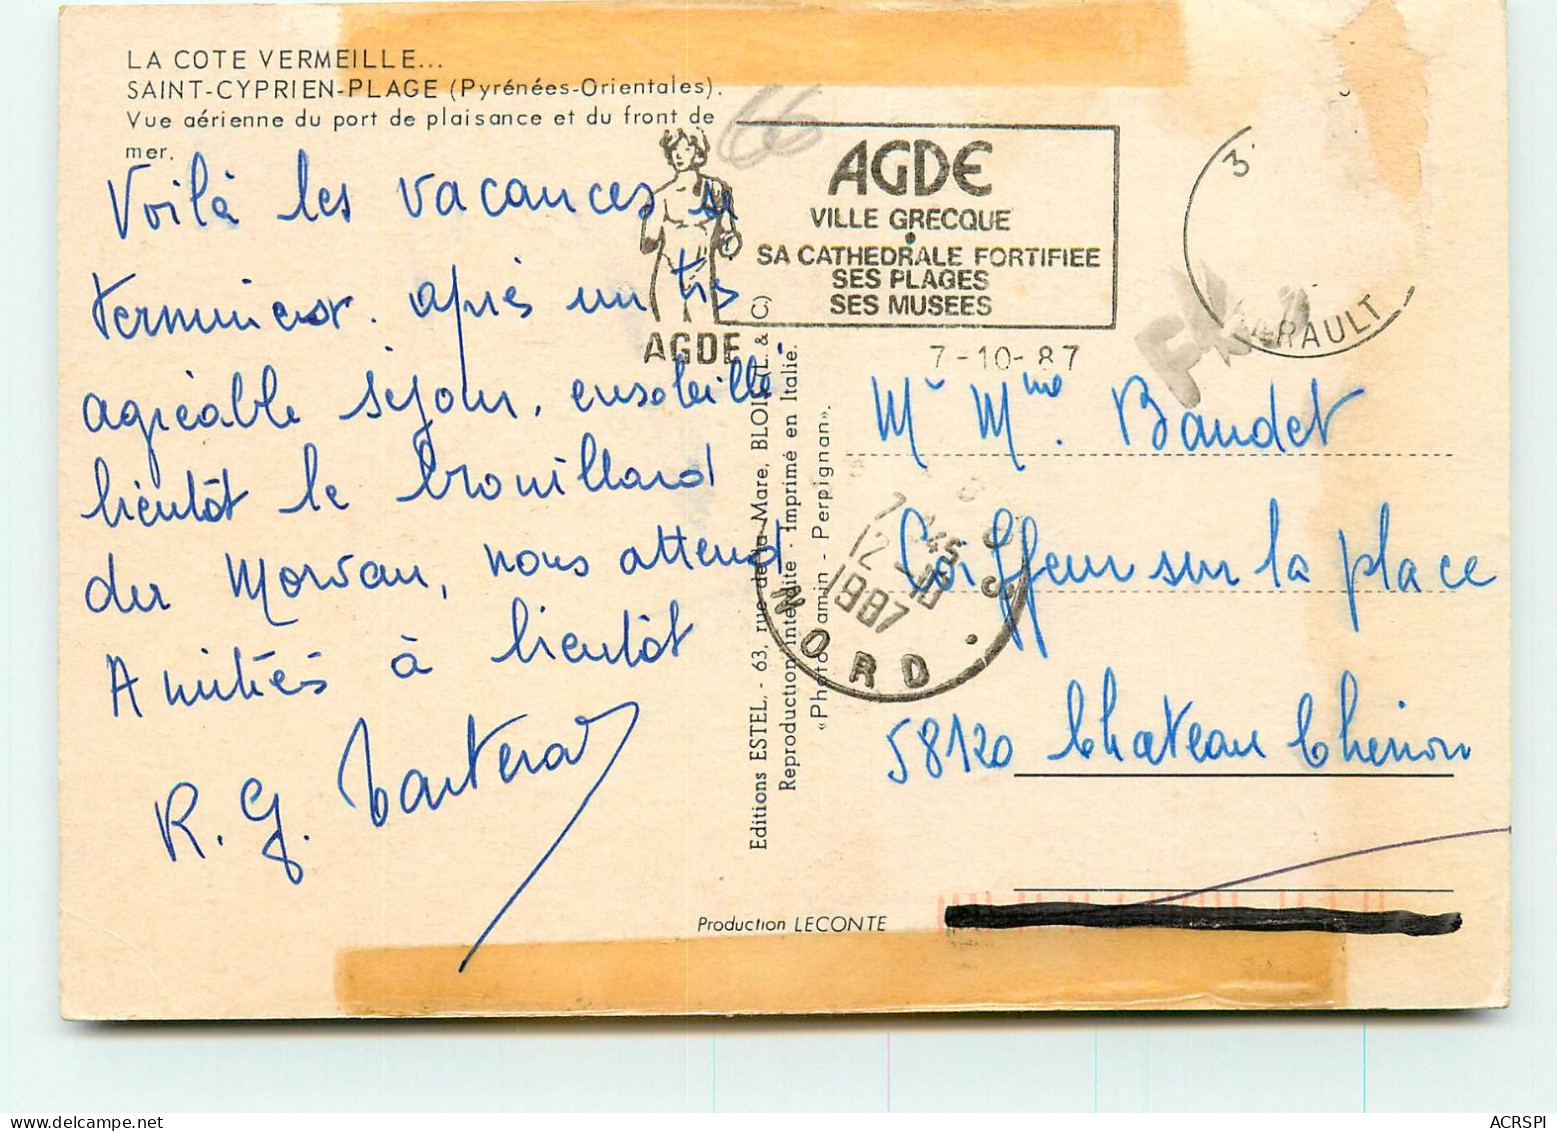 LA COTE VERMEILLE...
SAINT-CYPRIEN-PLAGE (Pyrénées-Orientales).
Vue aérienne du port de plaisance et du front de
mer.
66
Voilà les vacances se
terminent. après un très
agréable séjour, ensoleillé
bientôt le brouillard
du Morvan, nous attend
Amitiés à bientôt
R. G.
AGDE
AGDE
VILLE GRECQUE
SA CATHEDRALE FORTIFIEE
SES PLAGES
SES MUSEES
7-10-87
RAULT
Editions ESTEL. - 63, rue de la Mare, BLOIS (L. & C.)
Reproduction interdite - Imprimé en Italie.
«Photo - Perpignan».
7 45
12 -10
1987
NORD
Mr Mme Baudet
Coiffeur sur la place
58120 Chateau Chinon
Production LECONTE
ACRSPI